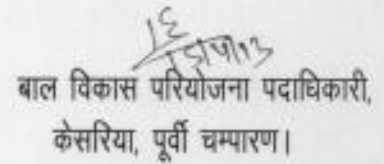 बाल विकास परियोजना पदाधिकारी,
केसरिया, पूर्वी चम्पारण।